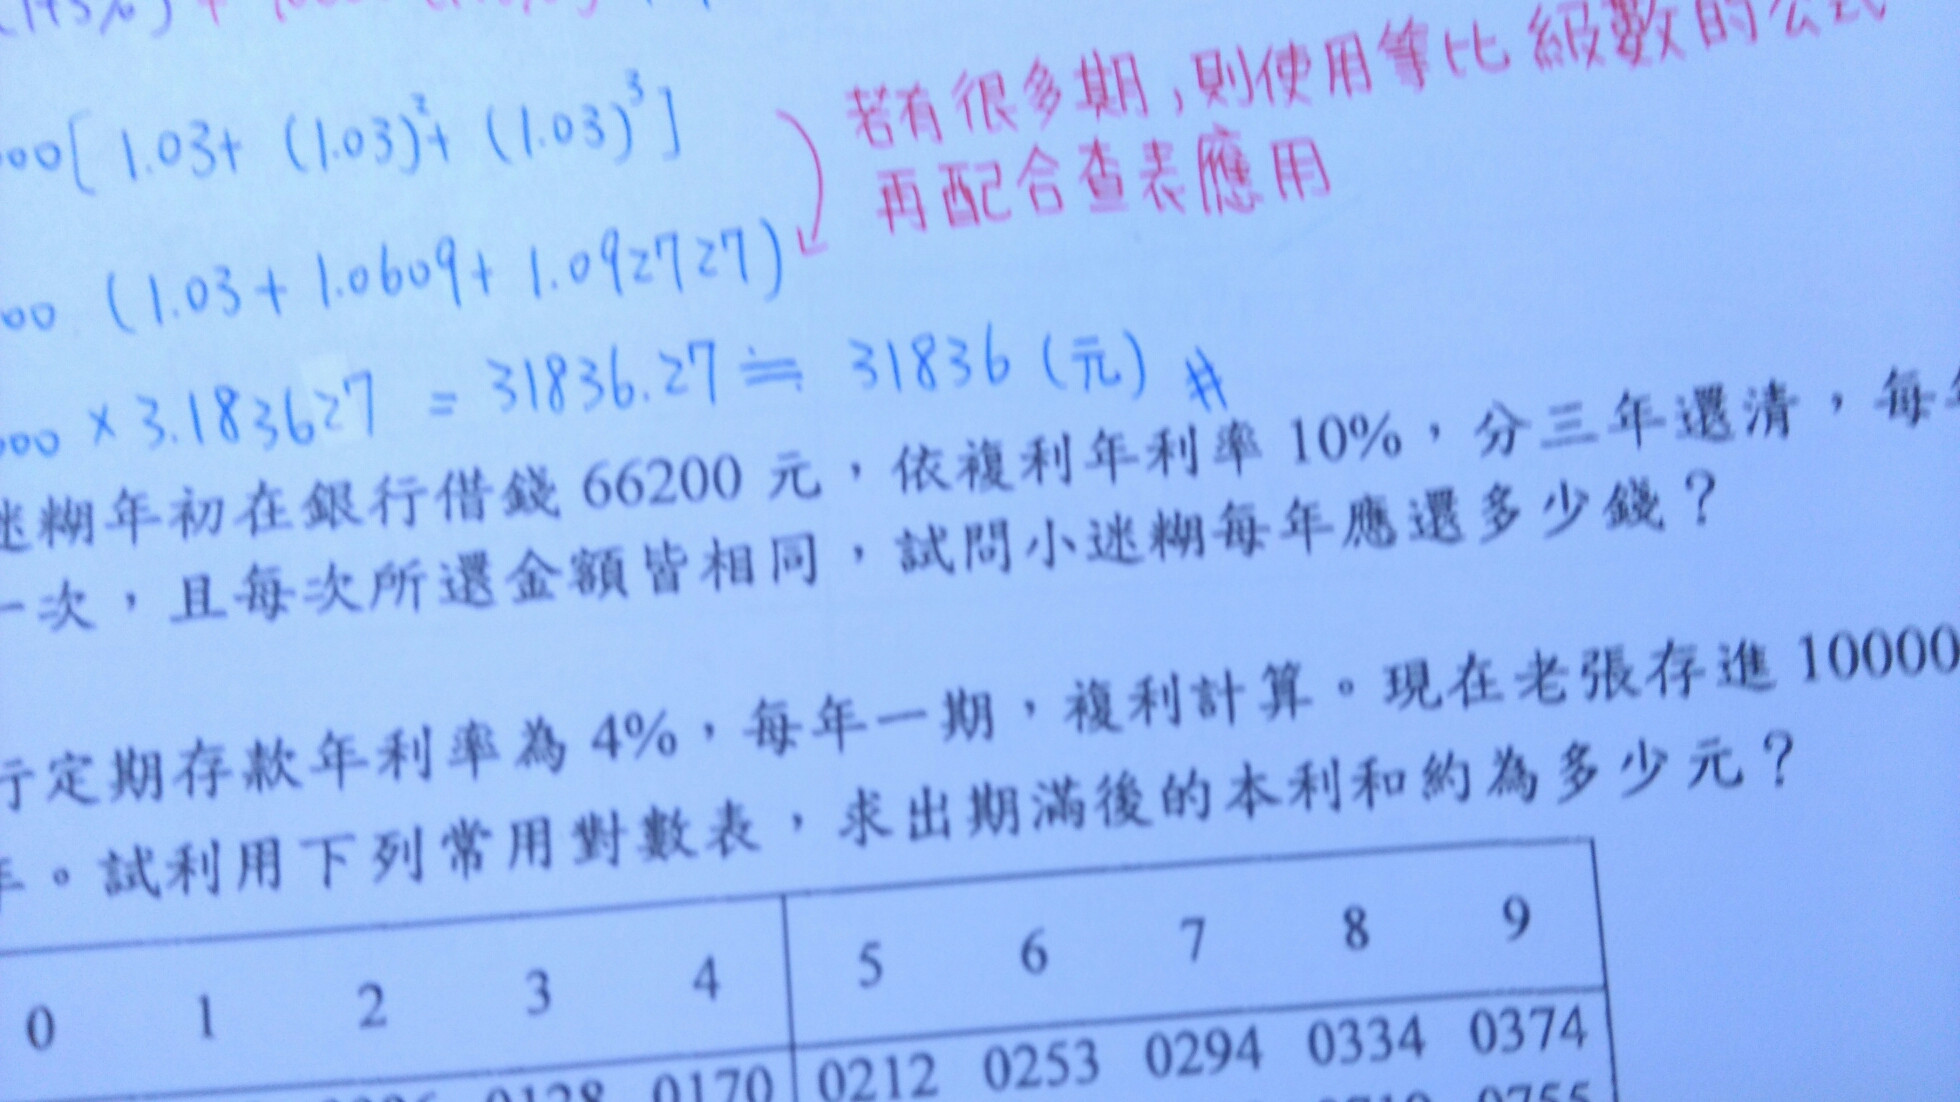 (1+3%)
00[ 1.03+ (1.03)²+ (1.03)³]
若有很多期,則使用等比級數的公式
再配合查表應用
00 (1.03+1.0609+1.092727)
000×3.183627 = 31836.27≒ 31836(元)#
迷糊年初在銀行借錢66200元,依複利年利率10%,分三年還清,每年
一次,且每次所還金額皆相同,試問小迷糊每年應還多少錢?
行定期存款年利率為4%,每年一期,複利計算。現在老張存進10000
年。試利用下列常用對數表,求出期滿後的本利和約為多少元?
0 1 2 3 4 5 6 7 8 9
0128 0170 0212 0253 0294 0334 0374
0719 0755